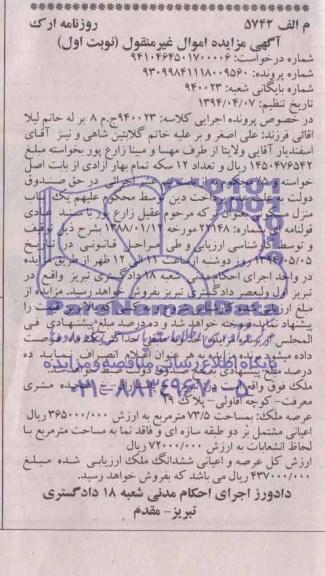 م الف ۵۷۴۲ روزنامه ارک
آگهی مزایده اموال غیرمنقول (نوبت اول)
شماره درخواست: ۹۴۱۰۴۶۴۵۰۱۷۰۰۰۰۶
شماره پرونده: ۹۳۰۹۹۸۴۱۱۱۸۰۰۹۵۶۰
شماره بایگانی شعبه: ۹۴۰۰۲۳
تاریخ تنظیم: ۱۳۹۴/۰۴/۰۷
در خصوص پرونده اجرایی کلاسه: ۹۴۰۰۲۳ج.م ۸ بر له خانم لیلا
اقائی فرزند: علی اصغر و بر علیه خانم گلابتین شاهی و نیز آقای
اسفندیار آقایی ولایتا از طرف مهسا و مبینا زارع پور بخواسته مبلغ
۱۴۵۰۴۷۶۵۴۲ ریال و تعداد ۱۲ سکه تمام بهار آزادی از بابت اصل
خواسته و در حق صندوق
دولت دین توسط محکوم علیهم یک باب
منزل مسکونی بعنوان ترکه مرحوم عقیل زارع پور با سند عادی
قولنامه شماره: ۲۲۱۴۸ مورخه ۱۳۸۸/۰۱/۱۲ بشرح ذیل توقیف
و توسط کارشناس ارزیابی و طی مراحل قانونی در تاریخ
۱۳۹۴/۰۵/۰۵ روز دوشنبه از ساعت ۱۱ الی ۱۲ ظهر از طریق مزایده
در واحد اجرای احکام مدنی شعبه ۱۸ دادگستری تبریز واقع در
تبریز اول ولیعصر دادگستری تبریز بفروش خواهد رسید. مزایده از
مبلغ ارزیابی شروع و به کسی که بالاترین قیمت را
پیشنهاد نماید فروخته خواهد شد و ده درصد مبلغ پیشنهادی فی
المجلس حداکثر یک ماه فرصت
داده میشود برنده مزایده به هر عنوان اعلام انصراف نماید ده
درصد مبلغ پیشنهادی
ملک فوق واقع است در مشتری
معرفت- کوچه اقاولی- پلاک ۱۹
عرصه ملک: بمساحت ۷۳/۵ مترمربع به ارزش ۳۶۵۰۰۰/۰۰۰ ریال
اعیانی مشتمل بر دو طبقه سازه ای و فاقد نما به مساحت مترمربع با
لحاظ انشعابات به ارزش ۷۲۰۰۰/۰۰۰ ریال
ارزش کل عرصه و اعیانی ششدانگ ملک ارزیابی شده مبلغ
۴۳۷۰۰۰/۰۰۰ ریال می باشد که بفروش خواهد رسید.
دادورز اجرای احکام مدنی شعبه ۱۸ دادگستری
تبریز- مقدم
پایگاه اطلاع رسانی مناقصه و مزایده
۰۲۱-۸۸۳۴۹۶۷۰-۵